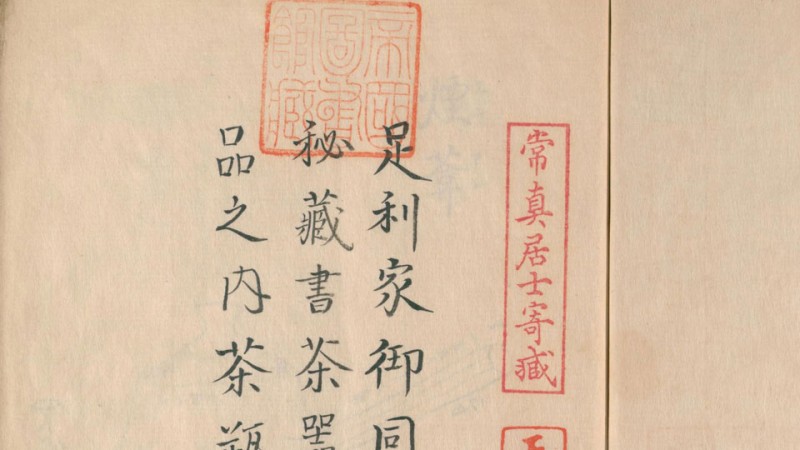 常真居士寄藏
足利家御同
秘藏書茶器
品之内茶瓶
帝國圖書館藏